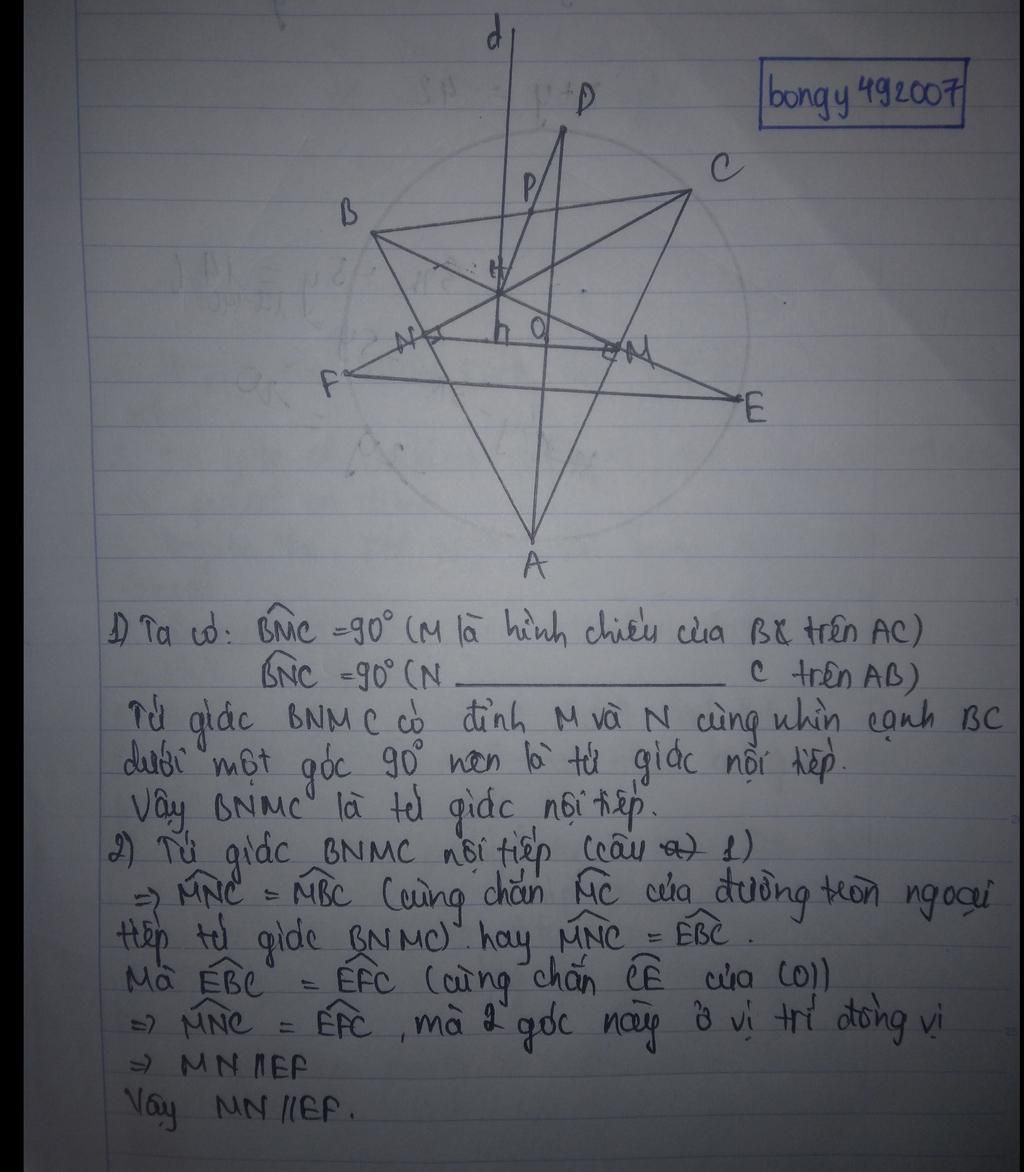 d
D
bongy 492007
C
P
B
H
N h O M
F
E
A
1) Ta có: BMC = 90° (M là hình chiếu của B trên AC)
BNC = 90° (N ________ C trên AB)
Tứ giác BNMC có đỉnh M và N cùng nhìn cạnh BC
dưới một góc 90° nên là tứ giác nội tiếp.
Vậy BNMC là tứ giác nội tiếp.
2) Tứ giác BNMC nội tiếp (câu a) 1)
=> MNC = MBC (cùng chắn MC của đường tròn ngoại
tiếp tứ giác BNMC) hay MNC = EBC.
Mà EBC = EFC (cùng chắn CE của (O))
=> MNC = EFC, mà 2 góc này ở vị trí đồng vị
=> MN // EF
Vậy MN // EF.